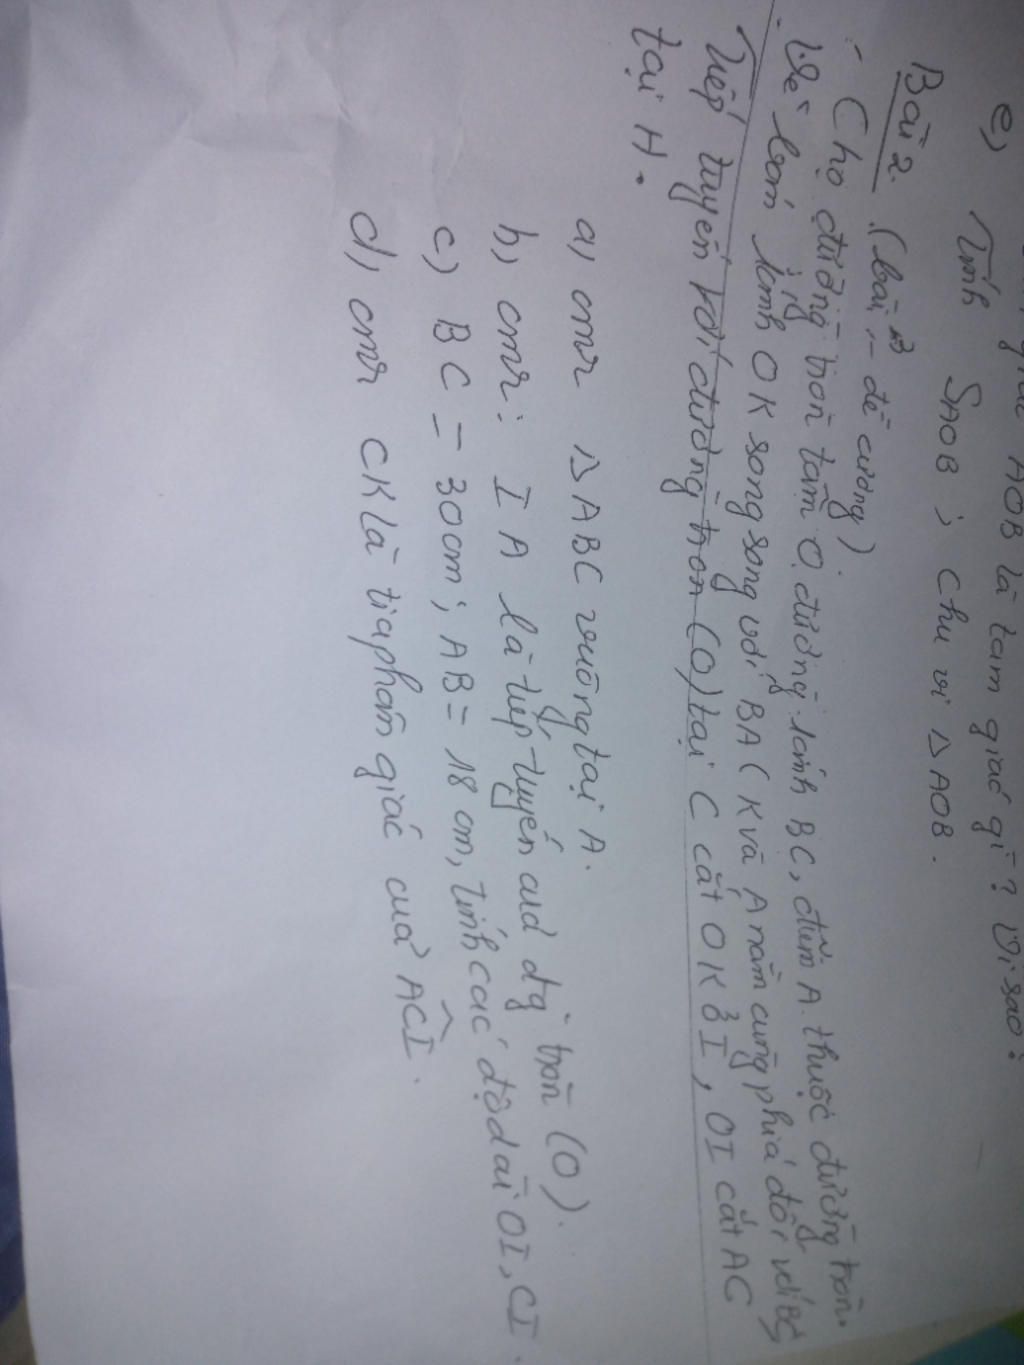 giác AOB là tam giác gì? Vì sao?
e) Tính SAOB; chu vi △AOB.
Bài 2. (bài - đề cương).
Cho đường tròn tâm O, đường kính BC, điểm A thuộc đường tròn.
Vẽ bán kính OK song song với BA (K và A nằm cùng phía đối với BC
Tiếp tuyến với đường tròn (O) tại C cắt OK ở I, OI cắt AC
tại H.
a) cmr △ABC vuông tại A.
b) cmr: IA là tiếp tuyến của đg tròn (O).
c) BC = 30cm; AB = 18 cm, tính các độ dài OI, CI.
d) cmr CK là tia phân giác của ACI.